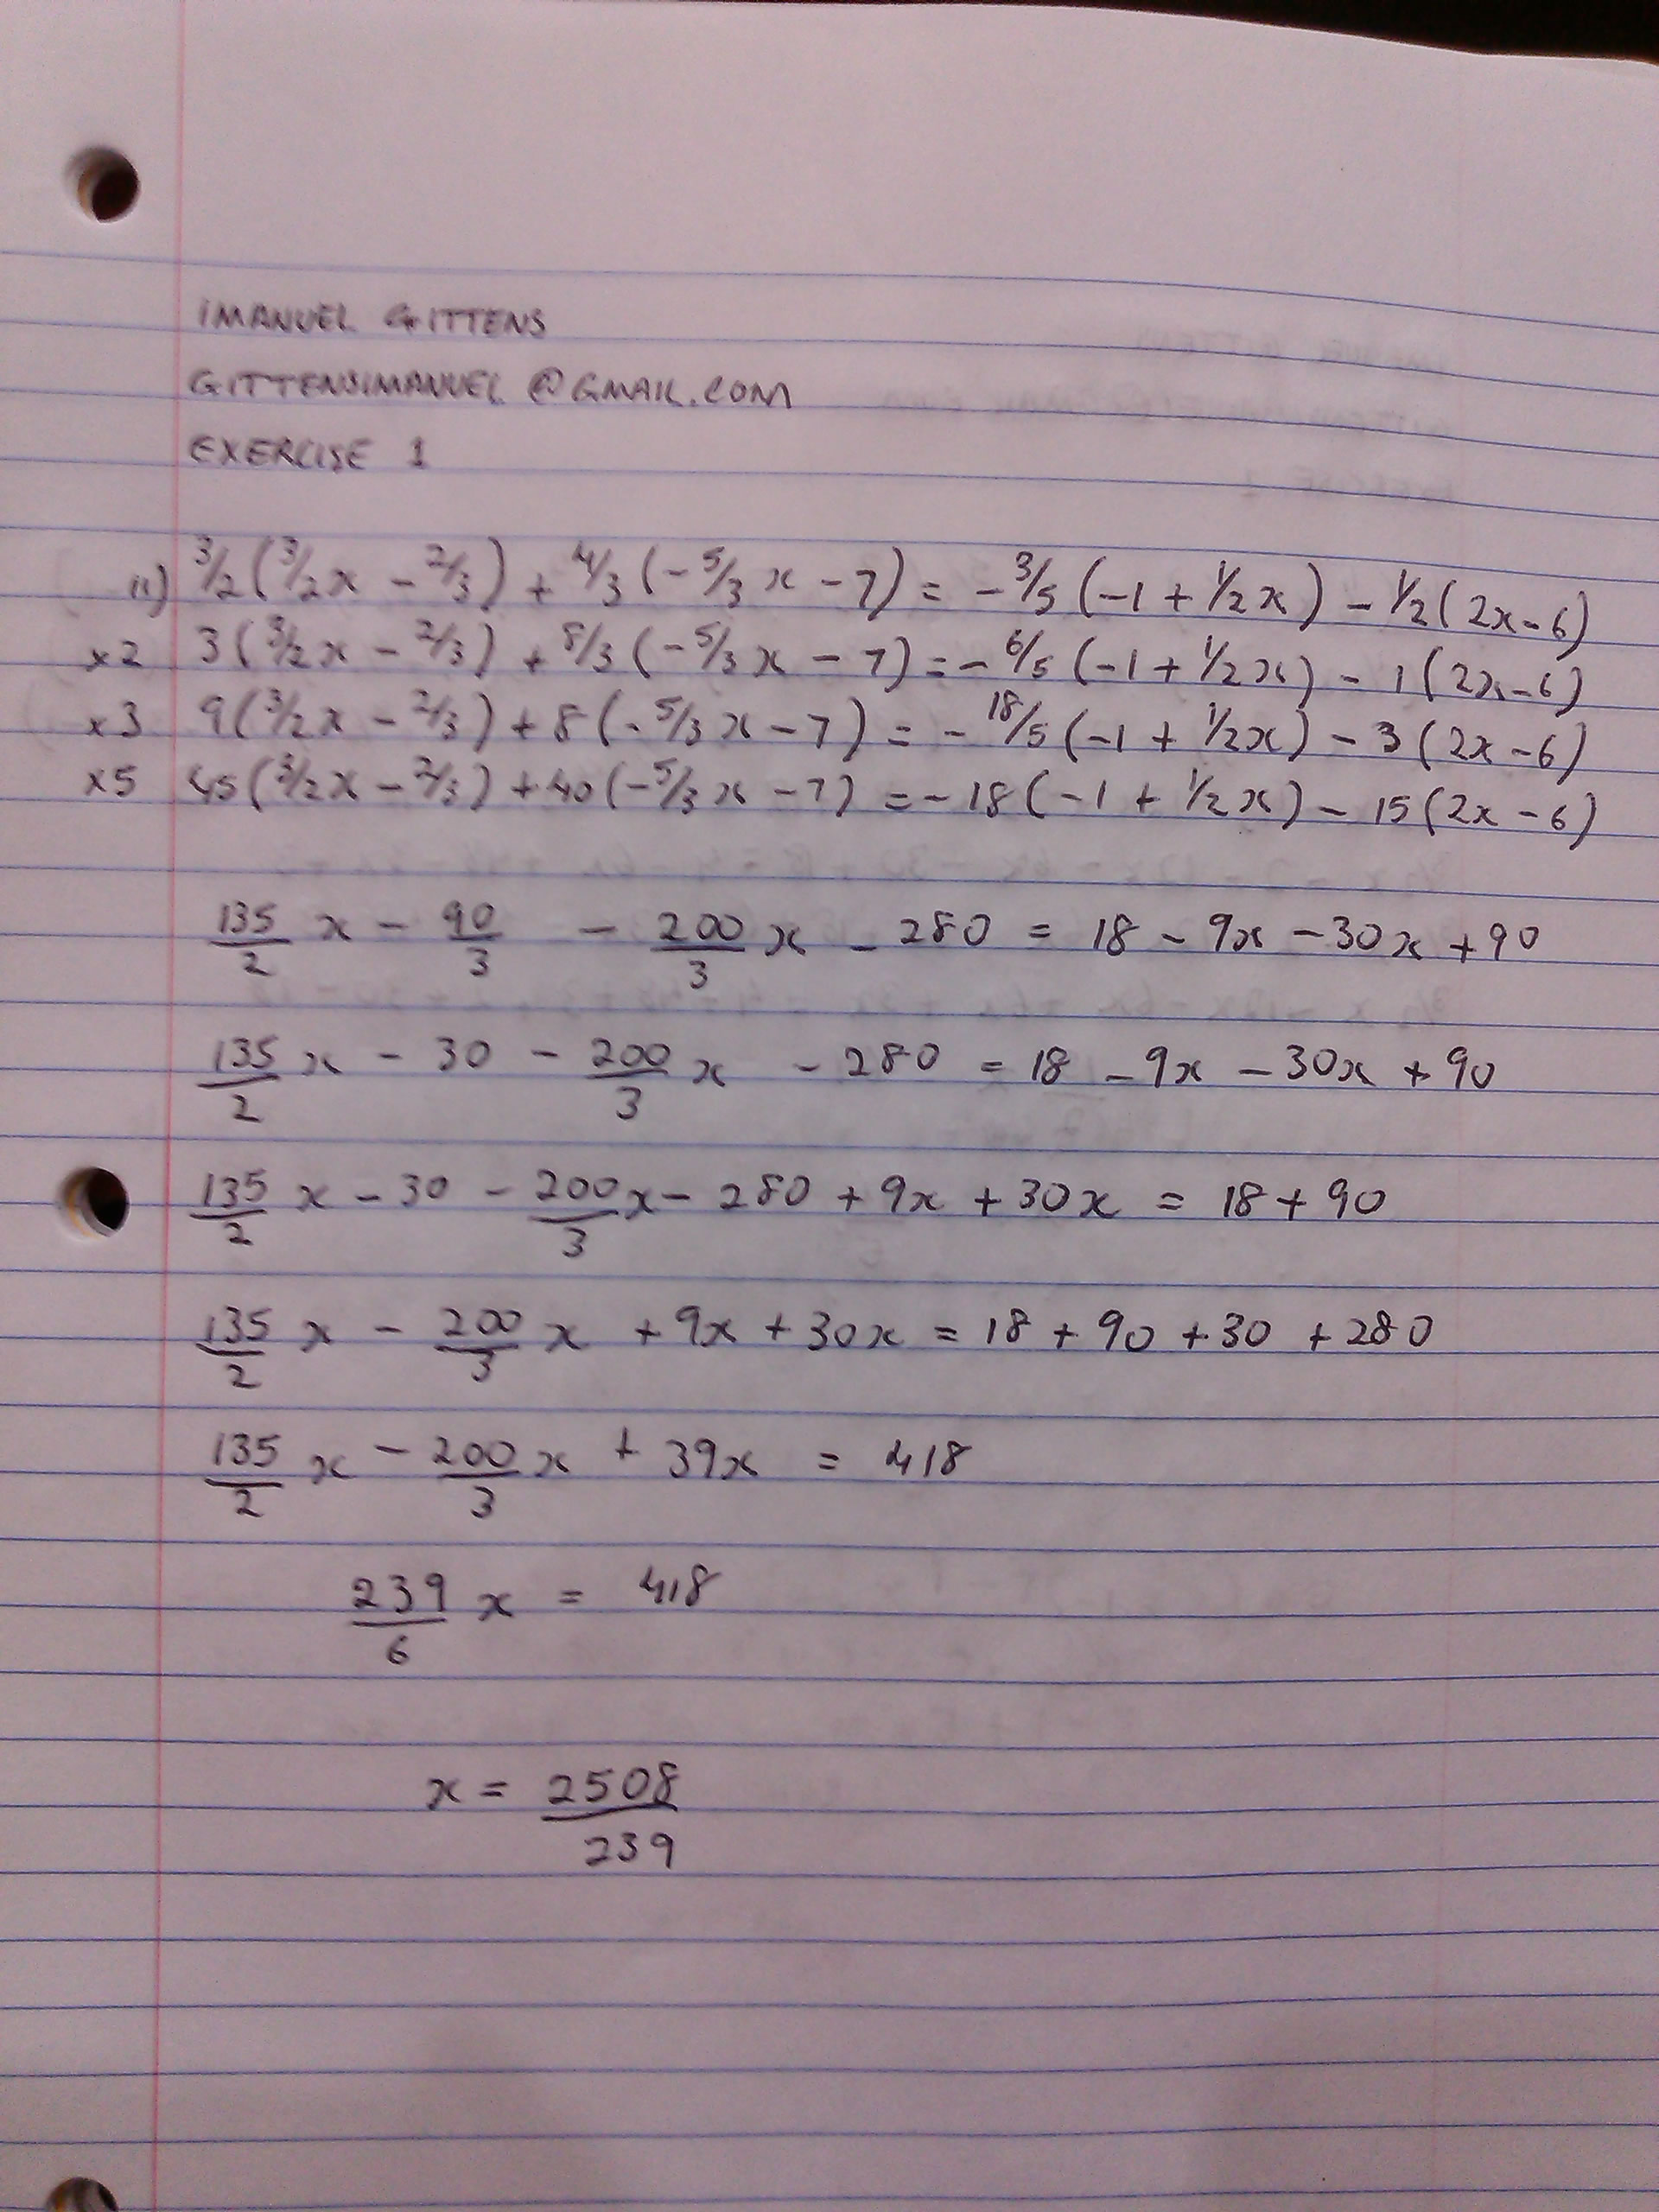 IMANUEL GITTENS
GITTENSIMANUEL @GMAIL.COM
EXERCISE 1
ii) 3/2 (3/2x - 2/3) + 4/3 (-5/3 x - 7) = -3/5 (-1 + 1/2x) - 1/2 (2x-6)
x2 3 (3/2x - 2/3) + 8/3 (-5/3 x - 7) = -6/5 (-1 + 1/2x) - 1 (2x-6)
x3 9(3/2x - 2/3) + 8 (-5/3 x - 7) = -18/5 (-1 + 1/2x) - 3 (2x-6)
x5 45(3/2x - 2/3) + 40(-5/3 x - 7) = -18 (-1 + 1/2x) - 15 (2x-6)
135/2 x - 90/3 - 200/3 x - 280 = 18 - 9x - 30x + 90
135/2 x - 30 - 200/3 x - 280 = 18 - 9x - 30x + 90
135/2 x - 30 - 200/3 x - 280 + 9x + 30x = 18 + 90
135/2 x - 200/3 x + 9x + 30x = 18 + 90 + 30 + 280
135/2 x - 200/3 x + 39x = 418
239/6 x = 418
x = 2508/239